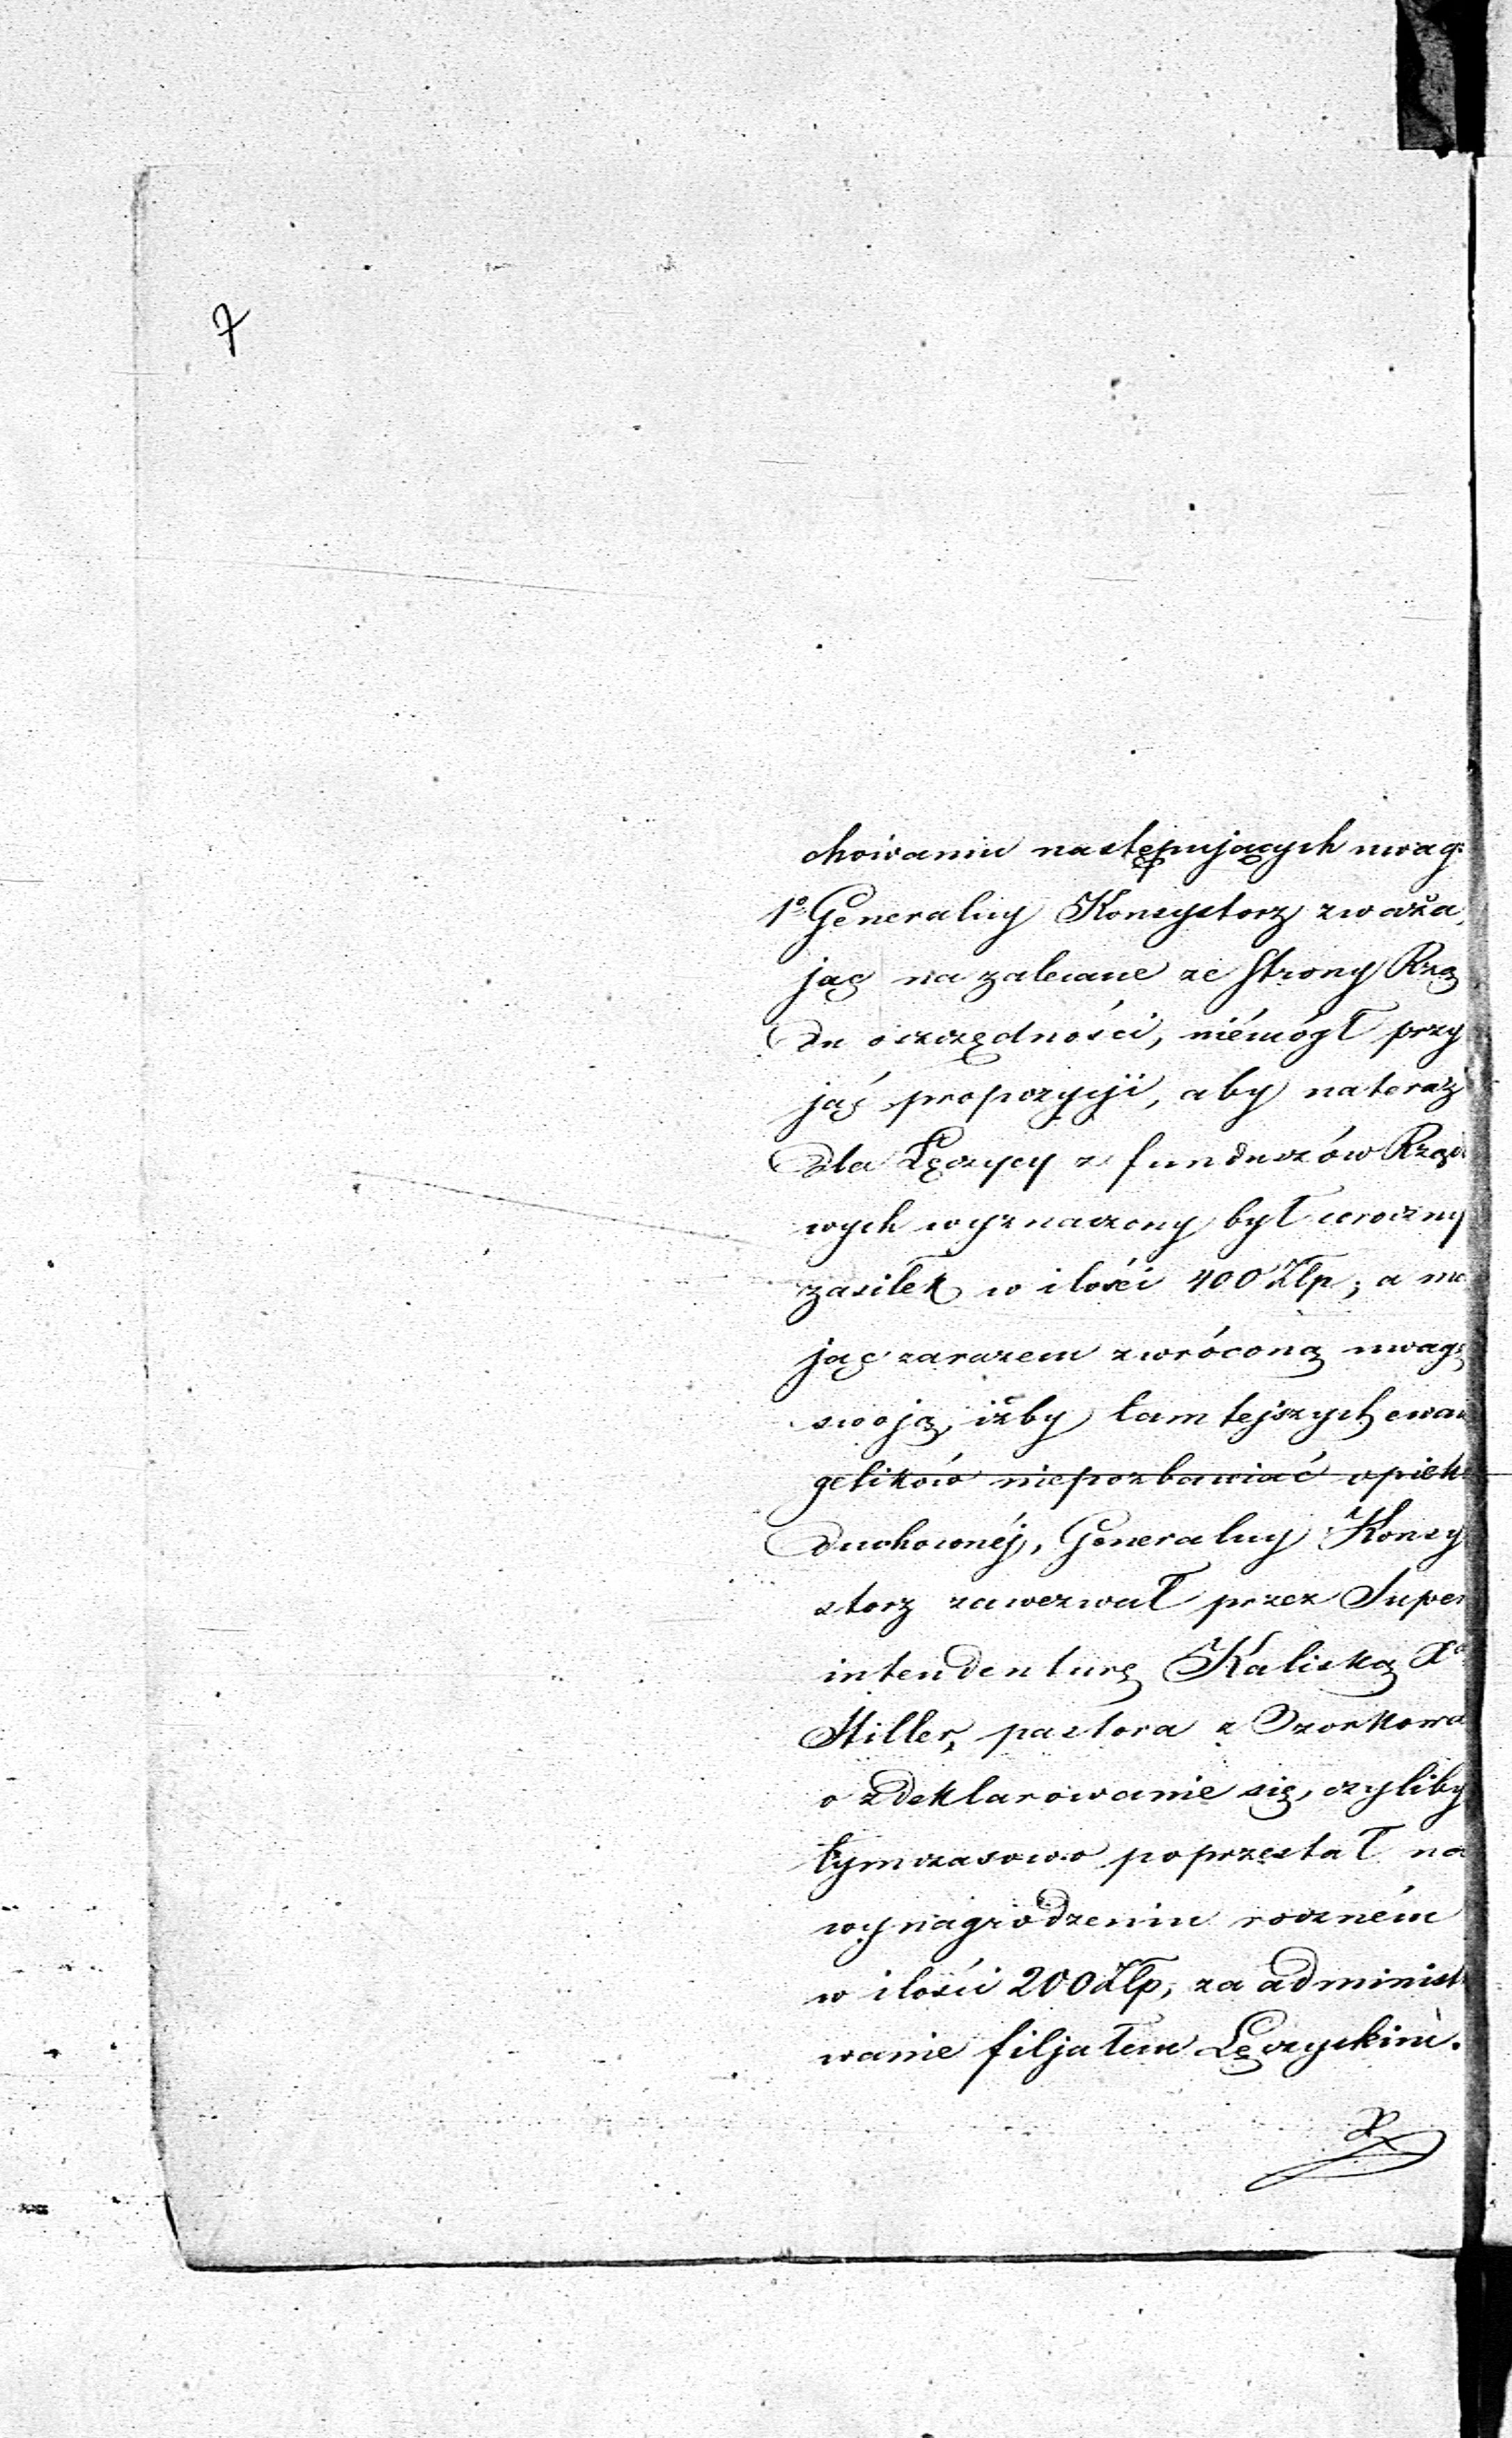 7
chowaniu następujących uwag:
1º Generalny Konsystorz zważa,
jąc na zalecane ze strony Rzą
du oszczędności, niémógł przy
jąć propozycji, aby na teraz
dla Łęczycy z funduszów Rządo
wych wyznaczony był coroczny
zasiłek w ilości 400 Złp; a ma
jąc zarazem zwróconą uwagę
swoją, iżby tamtejszych ewan
gelików niepozbawiać opieki
duchownéj, Generalny Konsy
storz zawezwał przez Super
intendenturę Kaliską Xa
Hiller, pastora z Ozorkowa
o zdeklarowanie się, czyliby
tymczasowo poprzestał na
wynagrodzeniu roczném
w ilości 200 Złp, za administ
wanie filjałem Łęczyckim.